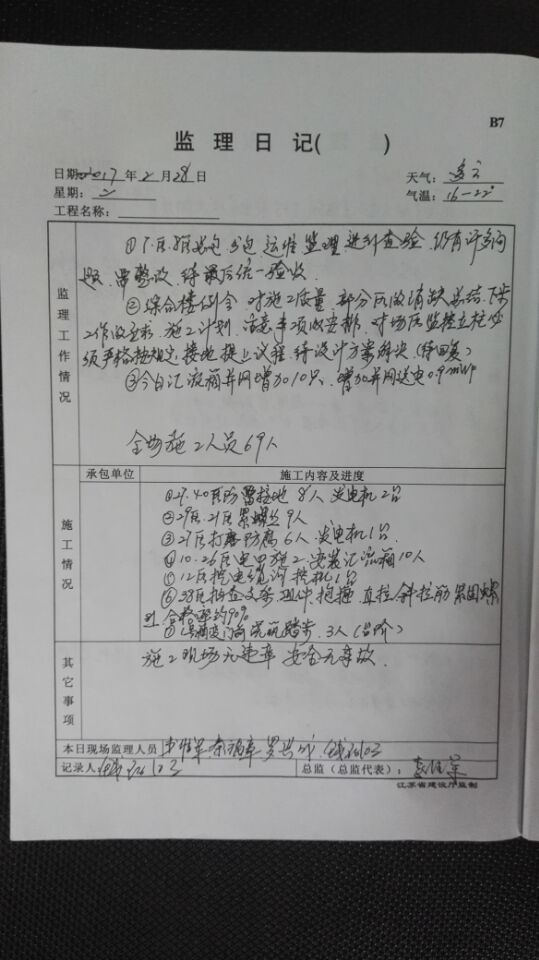 B7
监理日记( )
日期:2017年2月28日 天气:多云
星期:二 气温:16-22°
工程名称:
监理工作情况
运维 监理 进行查验,仍有许多问
题,需整改,待最后统一验收.
②综合楼例会 对施工质量,部分区做消缺总结.下步
工作做要求.施工计划.注意事项做安排.
须严格按规定.接地提上议程.待设计方案解决(待回复)
③今日汇流箱并网增加10只.增加并网送电0.9mwp
全场施工人员69人
施工情况
承包单位 施工内容及进度
①27.40区防雷接地 8人 发电机2台
②29区.21区紧螺丝9人
③27区打磨防腐6人.发电机1台.
④10.26区电口施工.安装汇流箱10人
⑤12区挖电缆沟 挖机1台
⑥38区抽查支架.组件.抱箍.直拉.斜拉筋.紧固螺
丝.合格率约90%
踏步.3人(台阶)
其它事项
施工现场无违章 安全无事故.
本日现场监理人员
记录人: 总监(总监代表):
江苏省建设厅监制